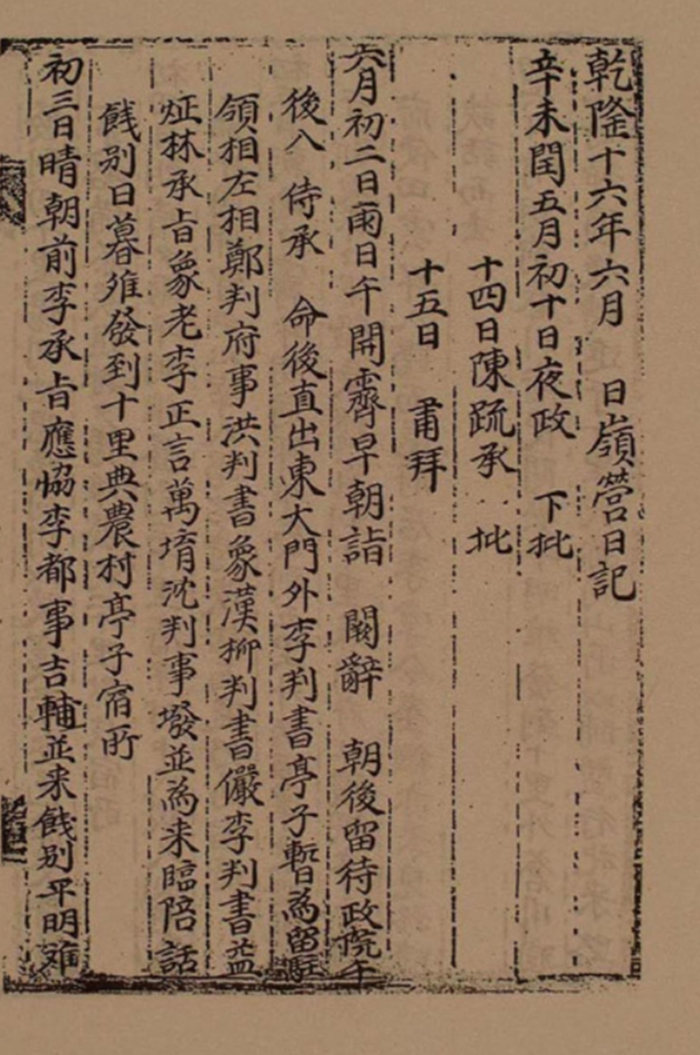 乾隆十六年六月 日嶺營日記
辛未閏五月初十日夜政 下批
十四日陳疏承 批
十五日 肅拜
六月初二日雨日午開霽早朝詣 闕辭 朝後留待政院午
後入 侍承 命後直出東大門外李判書亭子暫爲留駐
領相左相鄭判府事洪判書象漢柳判書儼李判書益
炡林承旨象老李正言萬堉沈判事墢並爲來臨陪話
餞别日暮離發到十里典農村亭子宿所
初三日晴朝前李承旨應恊李都事吉輔並来餞别平明離